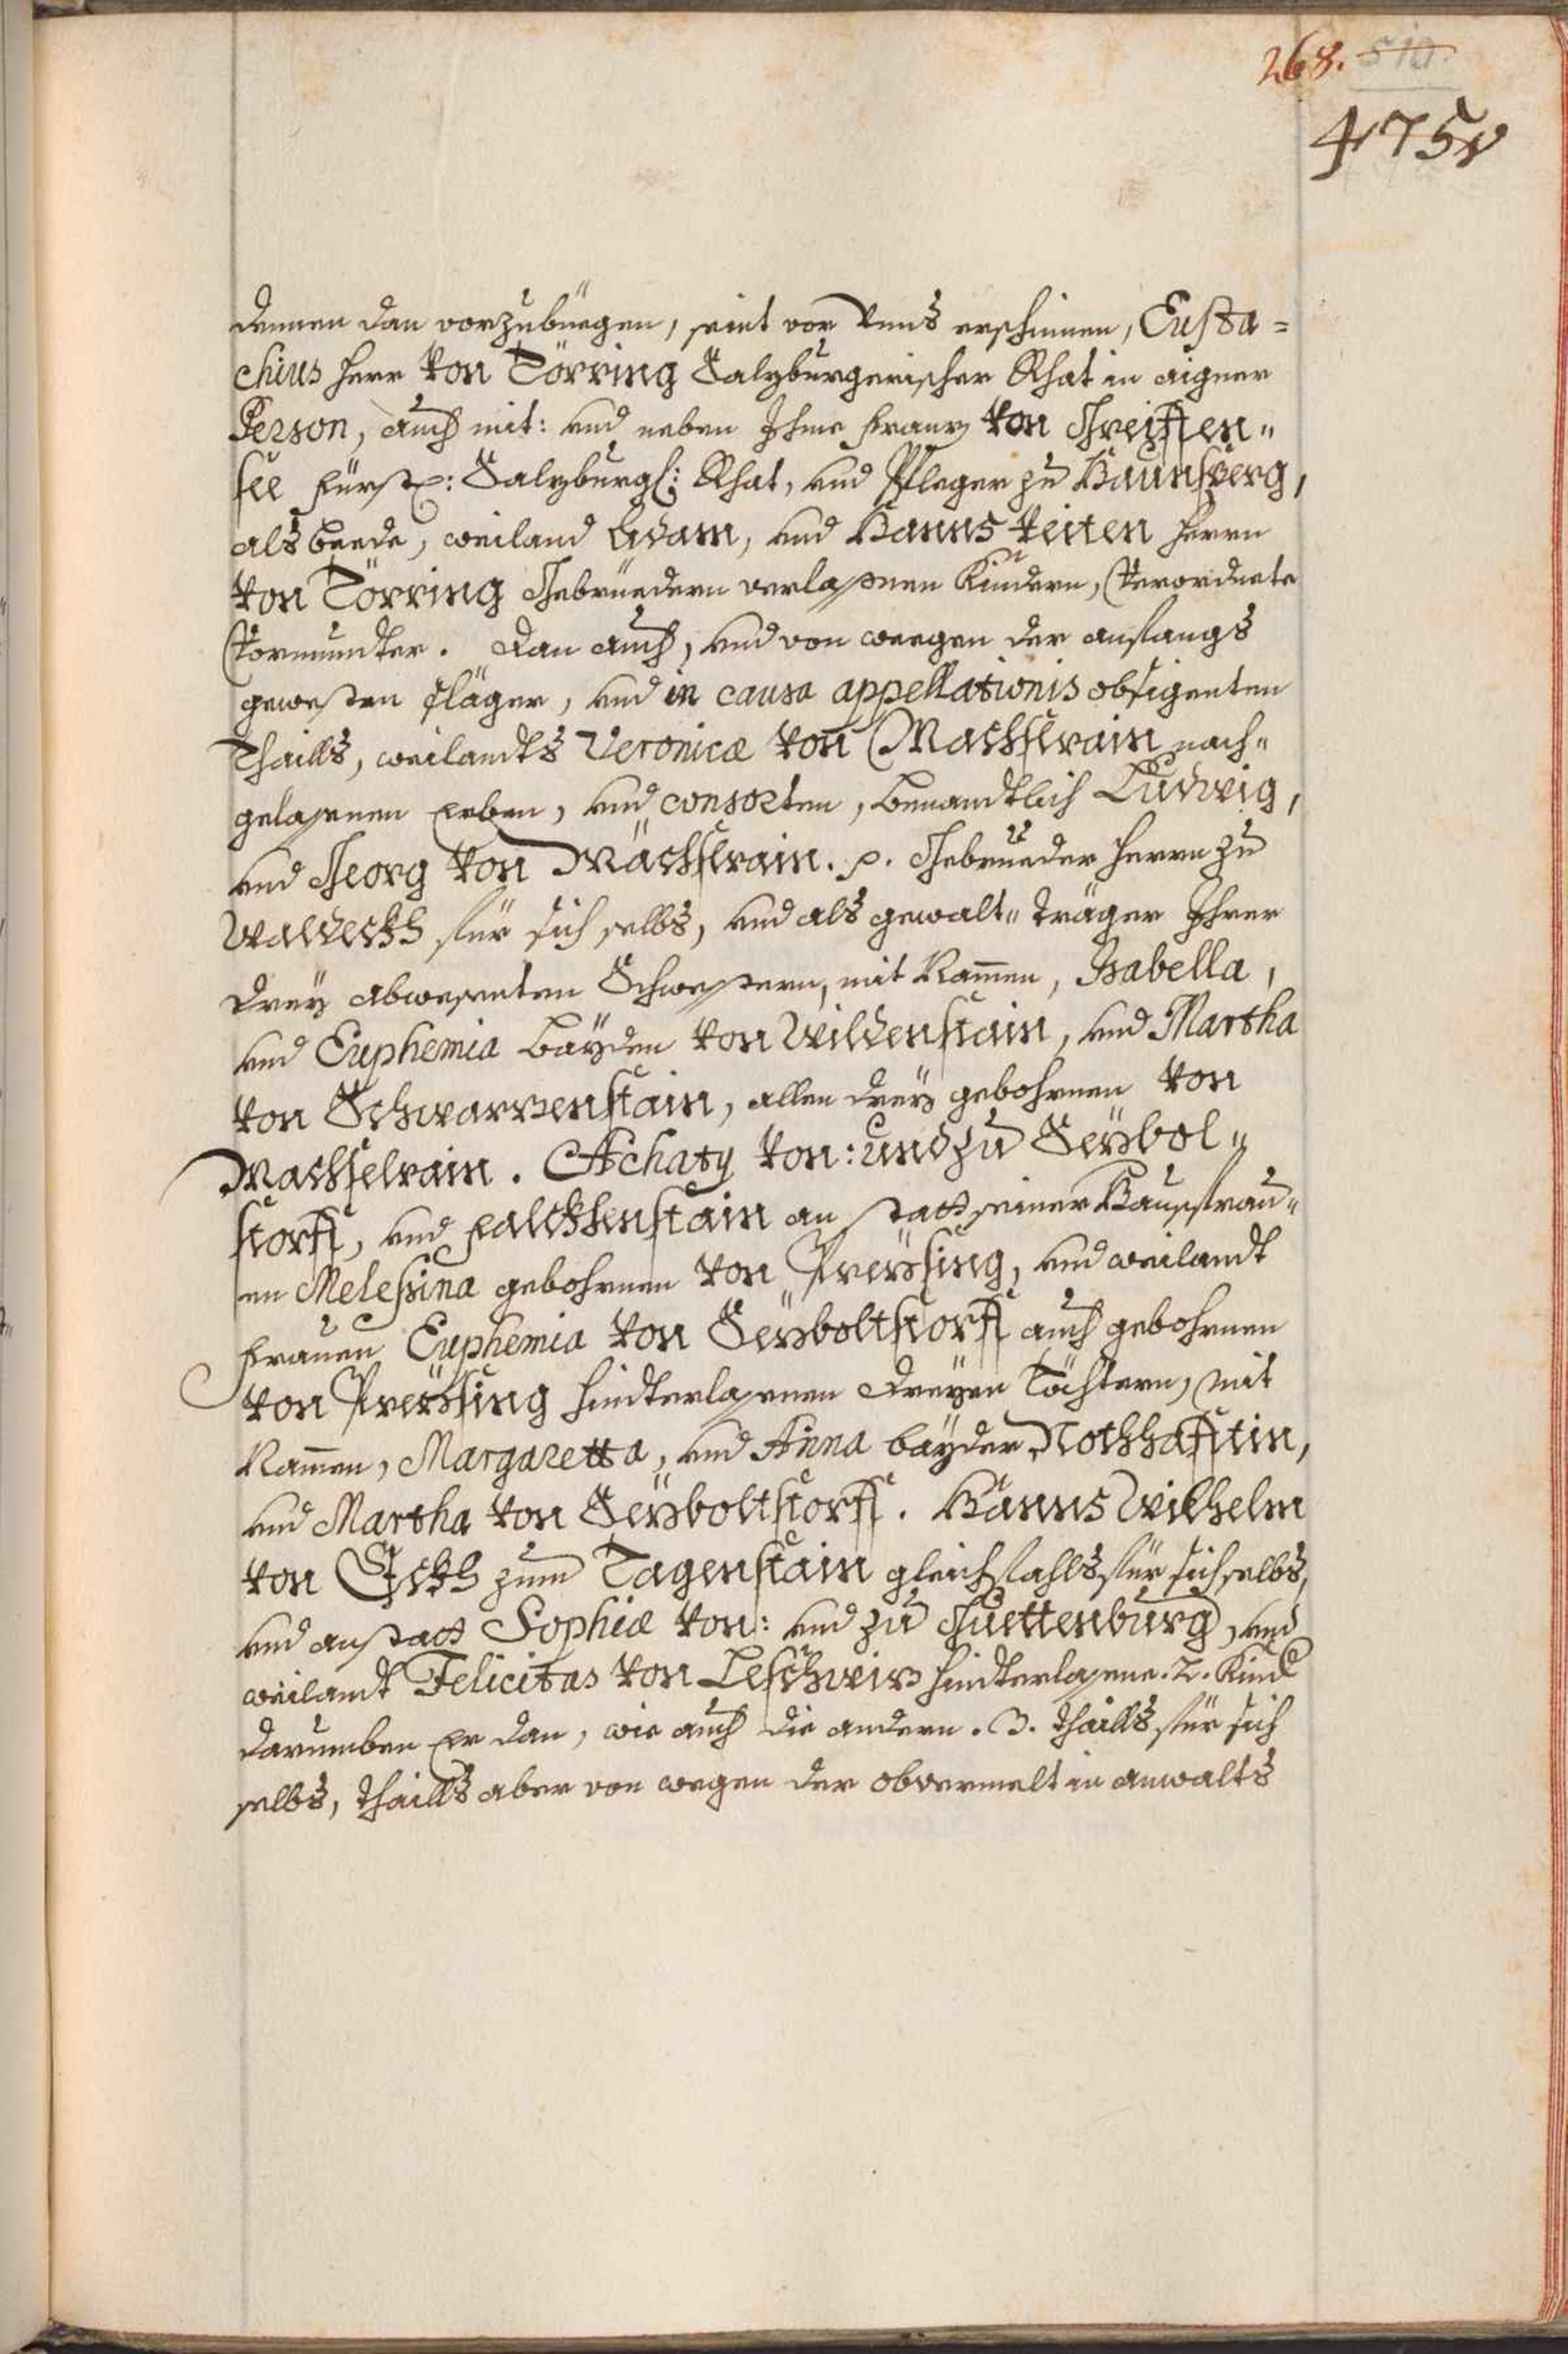 268. 510.
475v
dennen dan vorzubüegen, seint vor Unns erschinen, Eusta=
chius Herr von Törring Salzburgerischer Rhat in aigner
Person, auch mit: und neben Ihme Franz von Greiffen"
see Fürstl: Salzburgl: Rhat, und Pfleger zu Haunsperg,
als beede, weiland Adam, und Hanns Veiten Herrn
von Törring Gebrüedern verlassnen Kindern, Verordnete
Vormunder. Dan auch, und von weegen der anfangs
gewesten Cläger, und in causa appellationis obsigenten
Thaills, weilandts Veronicæ von Machslrain nach"
gelassnen Erben, und consorten, benandtlich Ludwig,
und Georg von Mächslrain. p. Gebrüeder Herrn zu
Waldeckh für sich selbs, und als gewalt" träger Ihrer
drey abwesenten Schwestern, mit Namen, Isabella,
und Euphemia bayden von Wildenstain, und Martha
von Schwarzenstain, allen drey gebohrnen von
Machselrain. Achaty von: und zu Seÿbol"
storff, und Falckhenstain an statt seiner Hausfrau"
en Melessina gebohrnen von Preÿsing, und weilandt
Frauen Euphemia von Seÿboltstorff auch gebohrnen
von Preÿsing hinderlassnen dreyen Töchtern, mit
Namen, Margaretta, und Anna bayder Nothhafftin,
und Martha von Seÿboltstorff. Hanns Wilhelm
von Eckh zum Tagenstain gleichfahls für sich selbs,
und anstatt Sophiæ von: und zu Guettenburg, und
weilandt Felicitas von Leschwiz hinderlassne. 2. Kind
darumben Er dan, wie auch die andern. 3. thaills für sich
selbs, thaills aber von wegen der obvermelt in anwalts